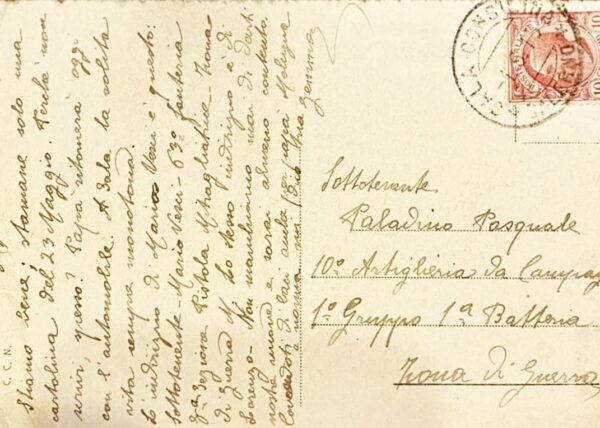 Stiamo bene; stamane solo una
cartolina del 23 Maggio. Perchè non
scrivi spesso? Papà ritornerà oggi
con l'automobile. A Sala la solita
vita sempre monotona.
Lo indirizzo di Mario Verri è questo:
Sottotenente Mario Verri - 63ª fanteria
Sezione Pistola Mitragliatrice - Zona
di guerra. Lo stesso indirizzo è di
Lorenzo - Non mancheremo mai di darti
nostre nuove e sarai almeno contento
Gemma
C.C.N.
SALA CONSILINA
10
Sottotenente
Paladino Pasquale
10º Artiglieria da Campag
1º Gruppo 1ª Batteria
Zona di Guerra